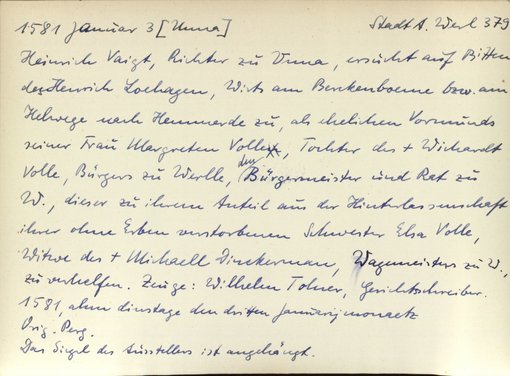 1581 Januar 3 [Unna] Stadt A. Werl 379
Heinrich Vaigt, Richter zu Unna, ersucht auf Bitten
des Henrich Loehagen, Wirts am Berkenboeme bzw. am
Helwege nach Hemmerde zu, als ehelichen Vormunds
seiner Frau Margreten Volle, Tochter des + Wichardt
Volle, Bürgers zu Werlle, den Bürgermeister und Rat zu
W., dieser zu ihrem Anteil aus der Hinterlassenschaft
ihrer ohne Erben verstorbenen Schwester Elsa Volle,
Witwe des + Michaell Dinckerman, Wagemeisters zu W.,
zu verhelfen. Zeuge: Wilhelm Tolner, Gerichtschreiber.
1581, ahm dinstage den dritten Januarij monaetz
Orig. Perg.
Das Siegel des Ausstellers ist angehängt.